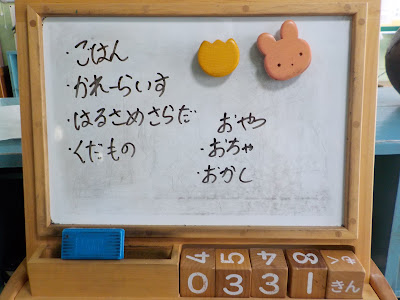 ・ごはん
・かれーらいす
・はるさめさらだ
・くだもの
おやつ
・おちゃ
・おかし
4 5 4 8 もく
0 3 3 1 きん